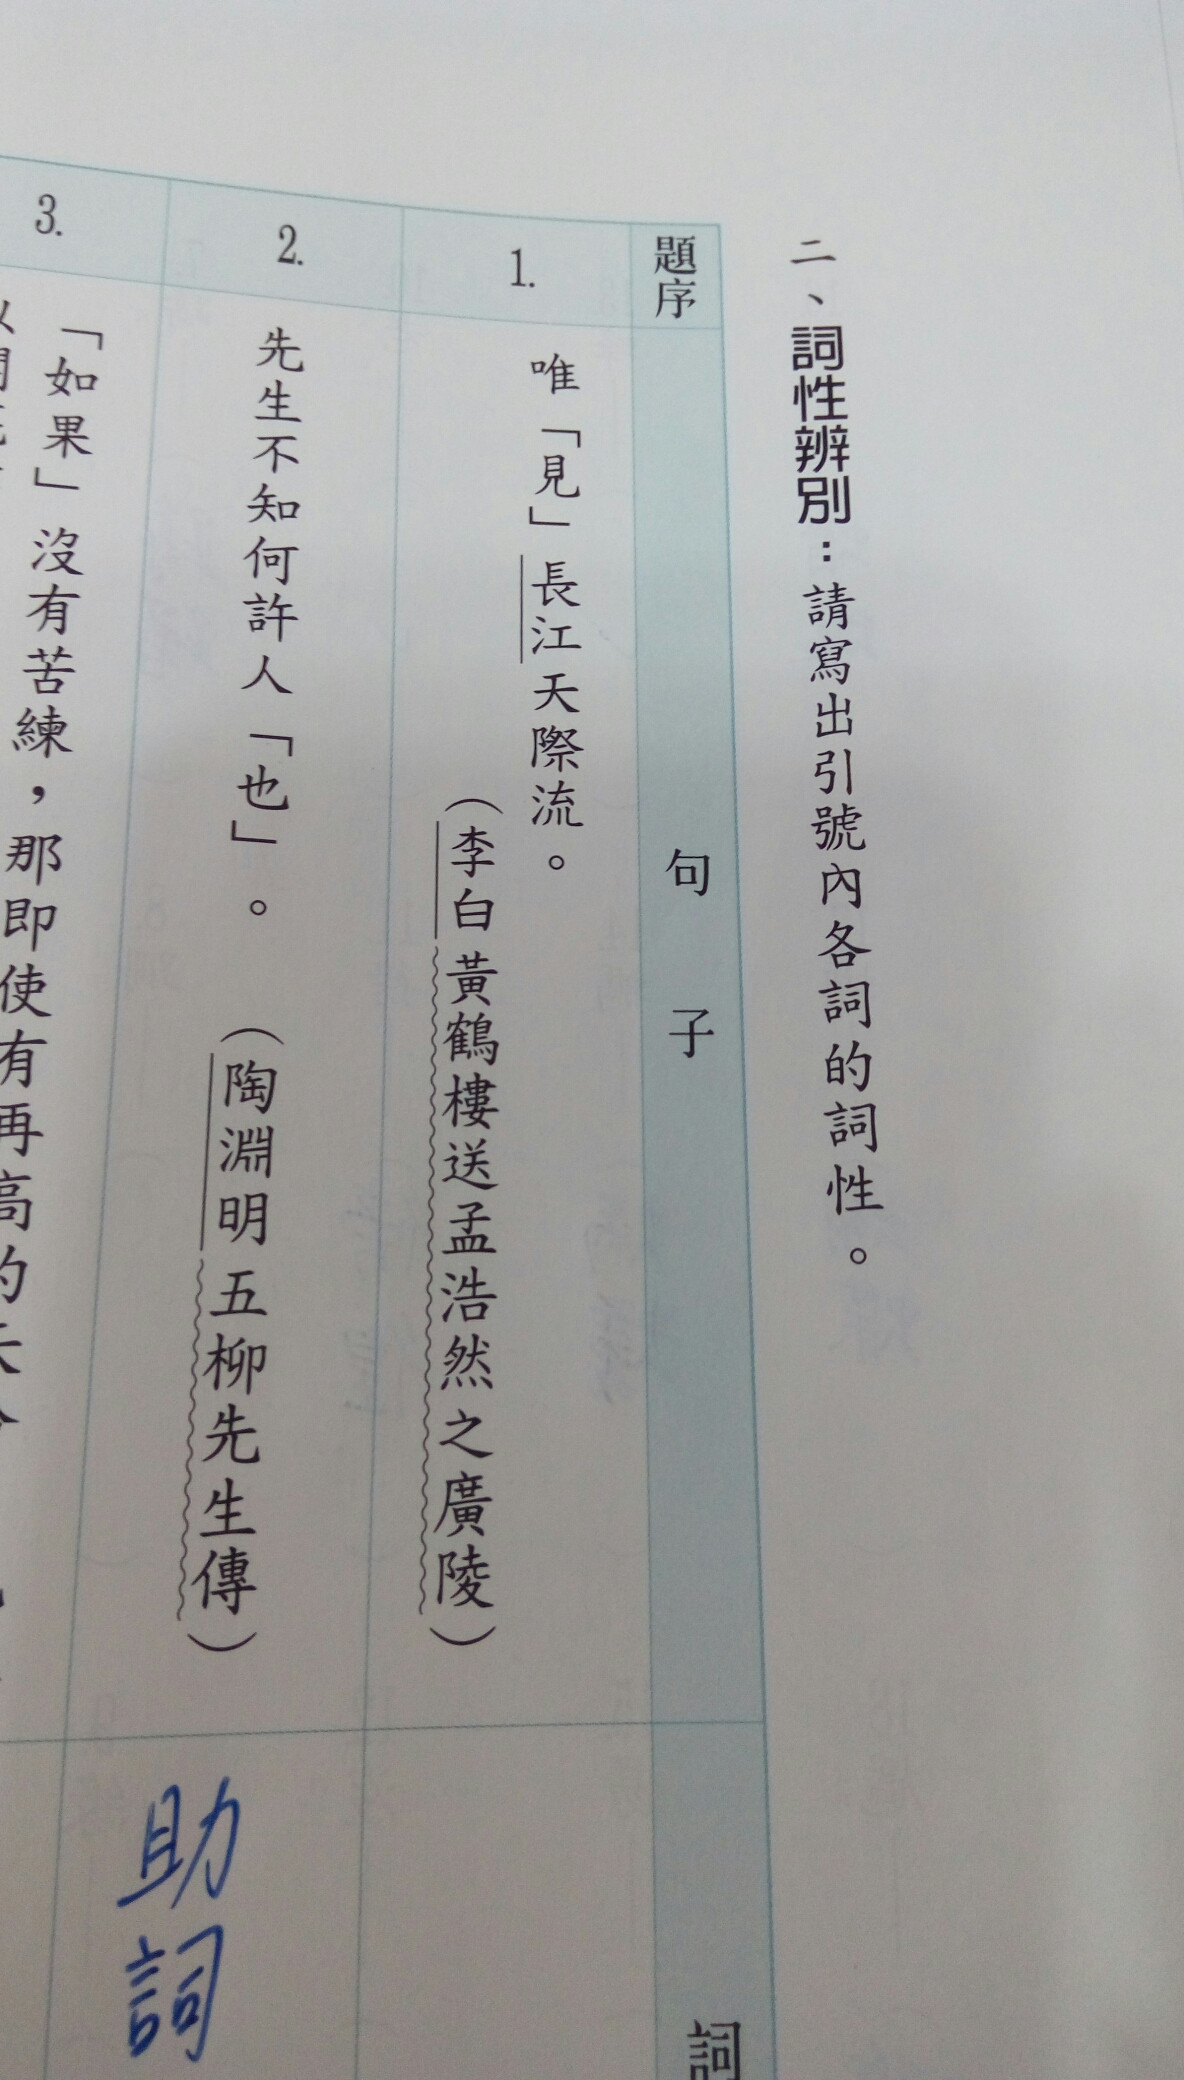 二、詞性辨別：請寫出引號內各詞的詞性。
題序
句子
詞
1.
唯「見」長江天際流。
（李白黃鶴樓送孟浩然之廣陵）
2.
先生不知何許人「也」。
（陶淵明五柳先生傳）
助詞
3.
「如果」沒有苦練，那即使有再高的天